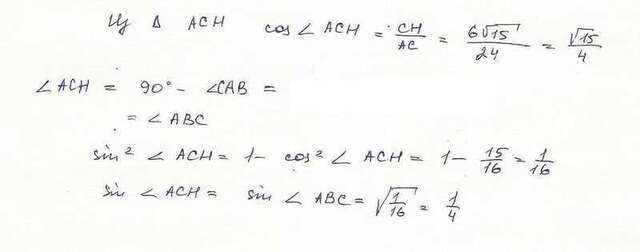 Из Δ ACH cos ∠ ACH = CH/AC = 6√15/24 = √15/4
∠ ACH = 90° - ∠CAB =
= ∠ ABC
sin² ∠ ACH = 1 - cos² ∠ ACH = 1 - 15/16 = 1/16
sin ∠ ACH = sin ∠ ABC = √1/16 = 1/4